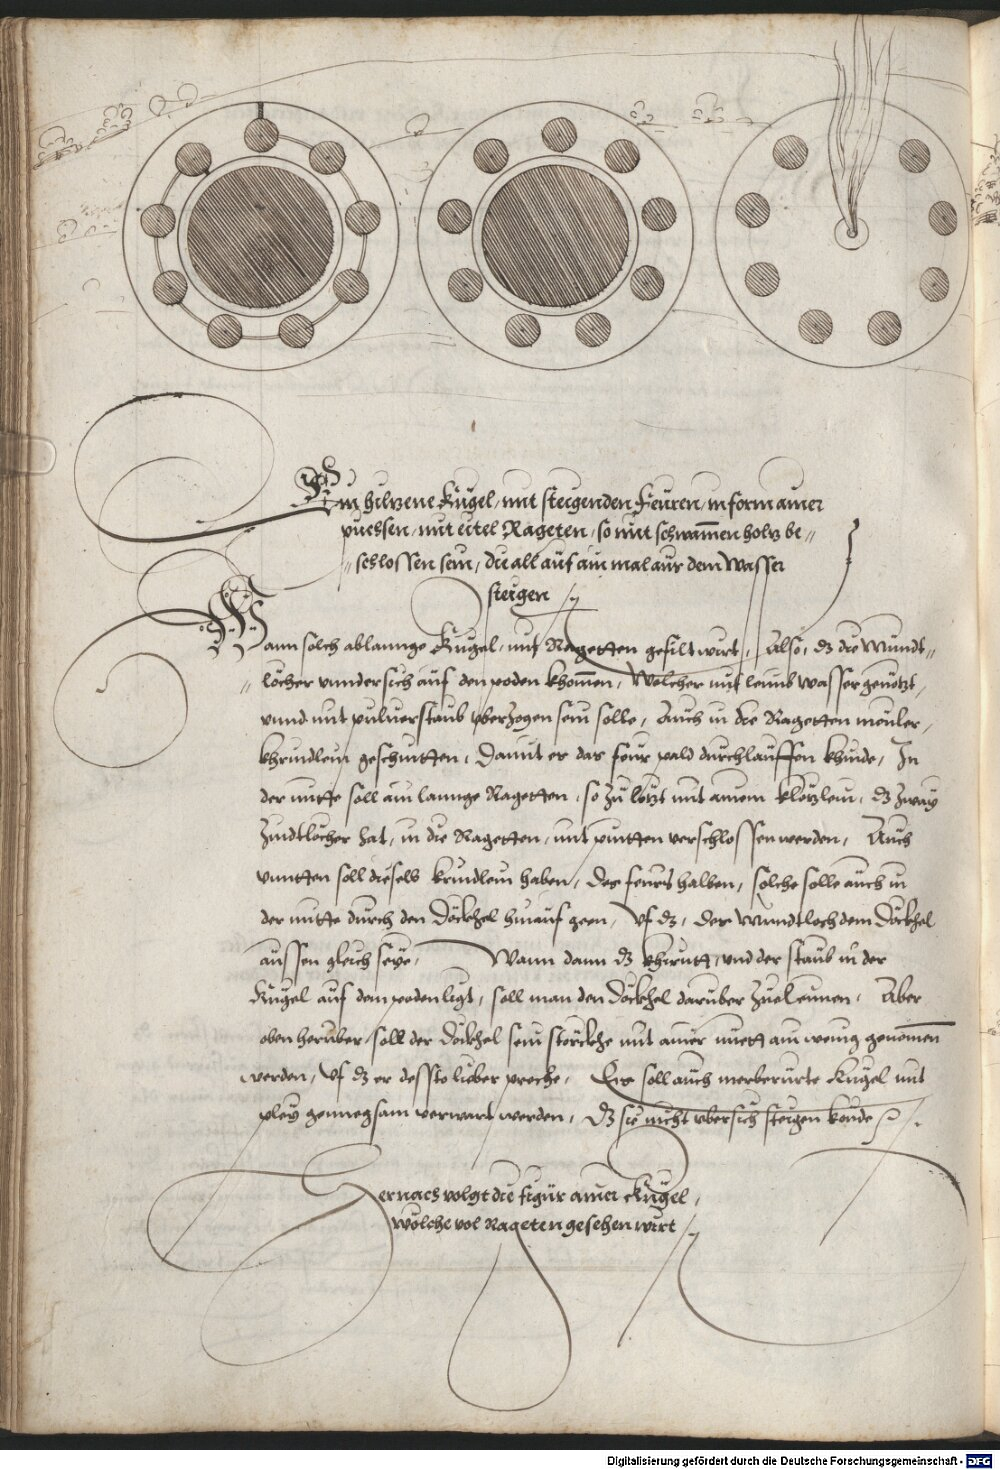 Ein hiltzene Kugel, mit steigenden Feüren, in form ainer
püchssen, mit eitel Rageten, so mit schwamen holtz be=
=schlossen sein, die all auf ain mal aus dem Wasser
steigen
Wann solch ablannge Kugel, mit Ragetten gefilt wirt, Also, dz die Mundt=
=löcher unndersich auf den poden khomen, Welcher mit leimb wasser genötzt,
unnd mit puluerstaub yberzogen sein solle, Auch in die Ragetten meüler,
khrindlein geschnitten, Damit er das feur pald durchlauffen khinde, In
der mitte soll ain lannge Ragetten, so zu letzt mit ainem klötzlein, dz zway
Zindtlöcher hat, in die Ragetten, mit putten verschlossen werden, Auch
unntten soll dieselb krindlein haben, des feurs halben, solche solle auch in
der mitte durch den Döckhel hinauf geen, Uf dz, der Mundtloch dem Döckhel
aussen gleich seye, Wann dann dz khraut, und der staub in der
Kugel auf dem poden ligt, soll man den Döckhel darüber Zueleimen, Aber
oben herüber soll der Döckhel sein störckhe mit ainer nuett ain wenig genomen
werden, Uf dz er dessto lieber preche, Es soll auch merberürte Kugel mit
pley genuegsam verwart werden, dz sie nicht ybersich steigen könde
Hernach volgt die figür ainer Kugel,
wölche vol Rageten gesehen wirt
Digitalisierung gefördert durch die Deutsche Forschungsgemeinschaft - DFG